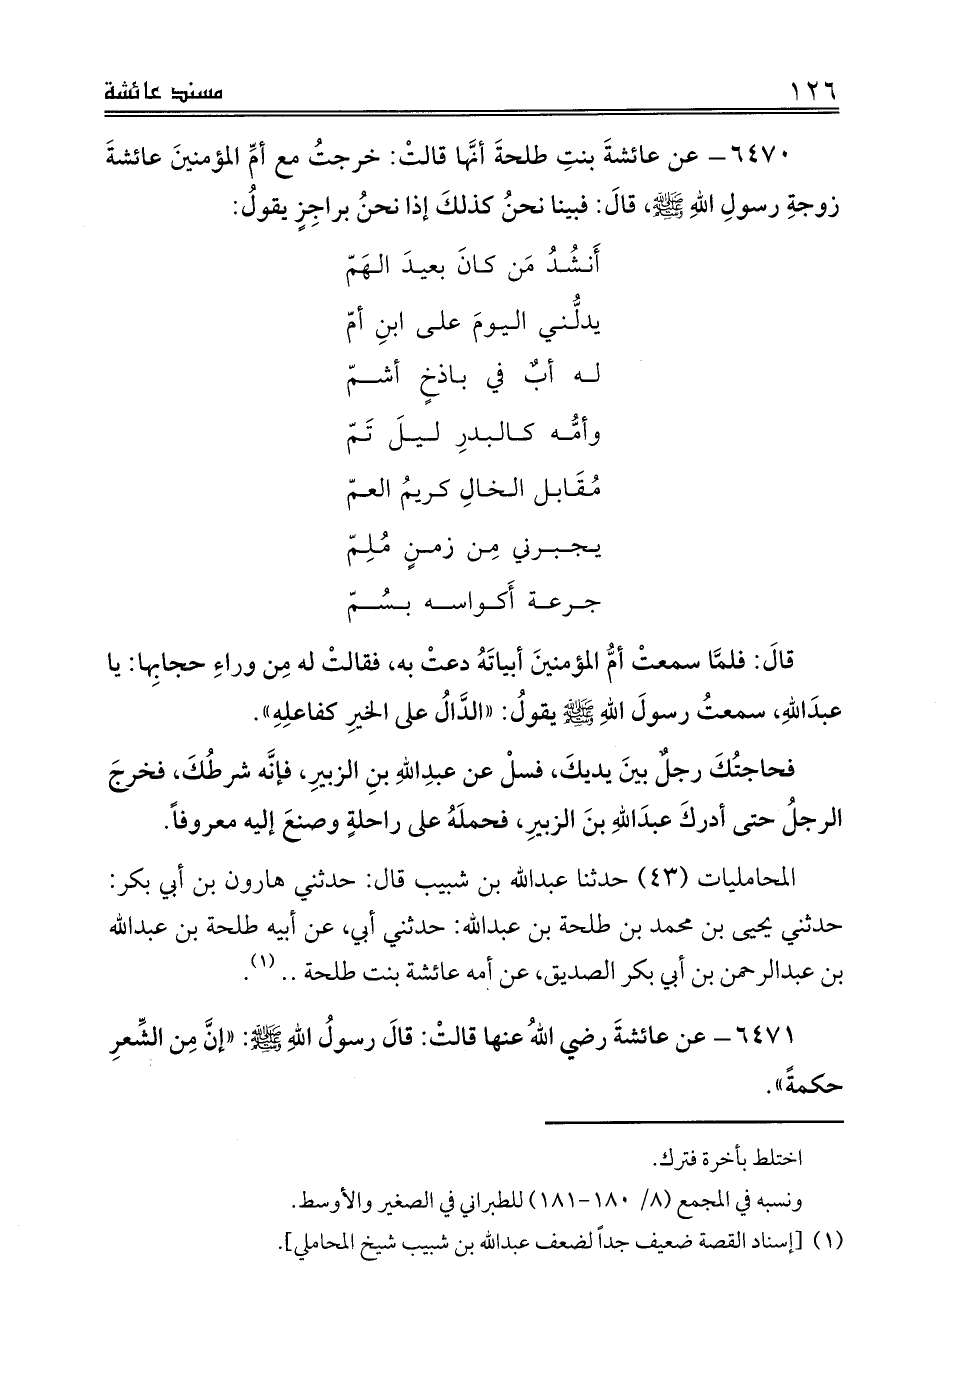 ١٢٦ مسند عائشة
٦٤٧٠ - عن عائشةَ بنتِ طلحةَ أنَّها قالتْ: خرجتُ مع أمِّ المؤمنينَ عائشةَ
زوجةِ رسولِ اللهِ ﷺ، قالَ: فبينا نحنُ كذلكَ إذا نحنُ براجِزٍ يقولُ:
أَنشُدُ مَن كانَ بعيدَ الهَمّ
يدلُّني اليومَ على ابنِ أمّ
له أبٌ في باذخٍ أشمّ
وأمُّه كالبدرِ ليلَ تَمّ
مُقَابل الخالِ كريمُ العمّ
يجبرني مِن زمنٍ مُلِمّ
جرعة أَكواسه بسُمّ
قالَ: فلمَّا سمعتْ أمُّ المؤمنينَ أبياتَهُ دعتْ به، فقالتْ له مِن وراءِ حجابِها: يا
عبدَاللهِ، سمعتُ رسولَ اللهِ ﷺ يقولُ: «الدَّالُ على الخيرِ كفاعلِهِ».
فحاجتُكَ رجلٌ بينَ يديكَ، فسلْ عن عبدِاللهِ بنِ الزبيرِ، فإنَّه شرطُكَ، فخرجَ
الرجلُ حتى أدركَ عبدَاللهِ بنَ الزبيرِ، فحملَهُ على راحلةٍ وصنعَ إليه معروفاً.
المحامليات (٤٣) حدثنا عبدالله بن شبيب قال: حدثني هارون بن أبي بكر:
حدثني يحيى بن محمد بن طلحة بن عبدالله: حدثني أبي، عن أبيه طلحة بن عبدالله
بن عبدالرحمن بن أبي بكر الصديق، عن أمه عائشة بنت طلحة .. (١).
٦٤٧١ - عن عائشةَ رضي اللهُ عنها قالتْ: قالَ رسولُ اللهِ ﷺ: «إنَّ مِن الشِّعرِ
حكمةً».
اختلط بأخرة فترك.
ونسبه في المجمع (٨/ ١٨٠-١٨١) للطبراني في الصغير والأوسط.
(١) [إسناد القصة ضعيف جداً لضعف عبدالله بن شبيب شيخ المحاملي].